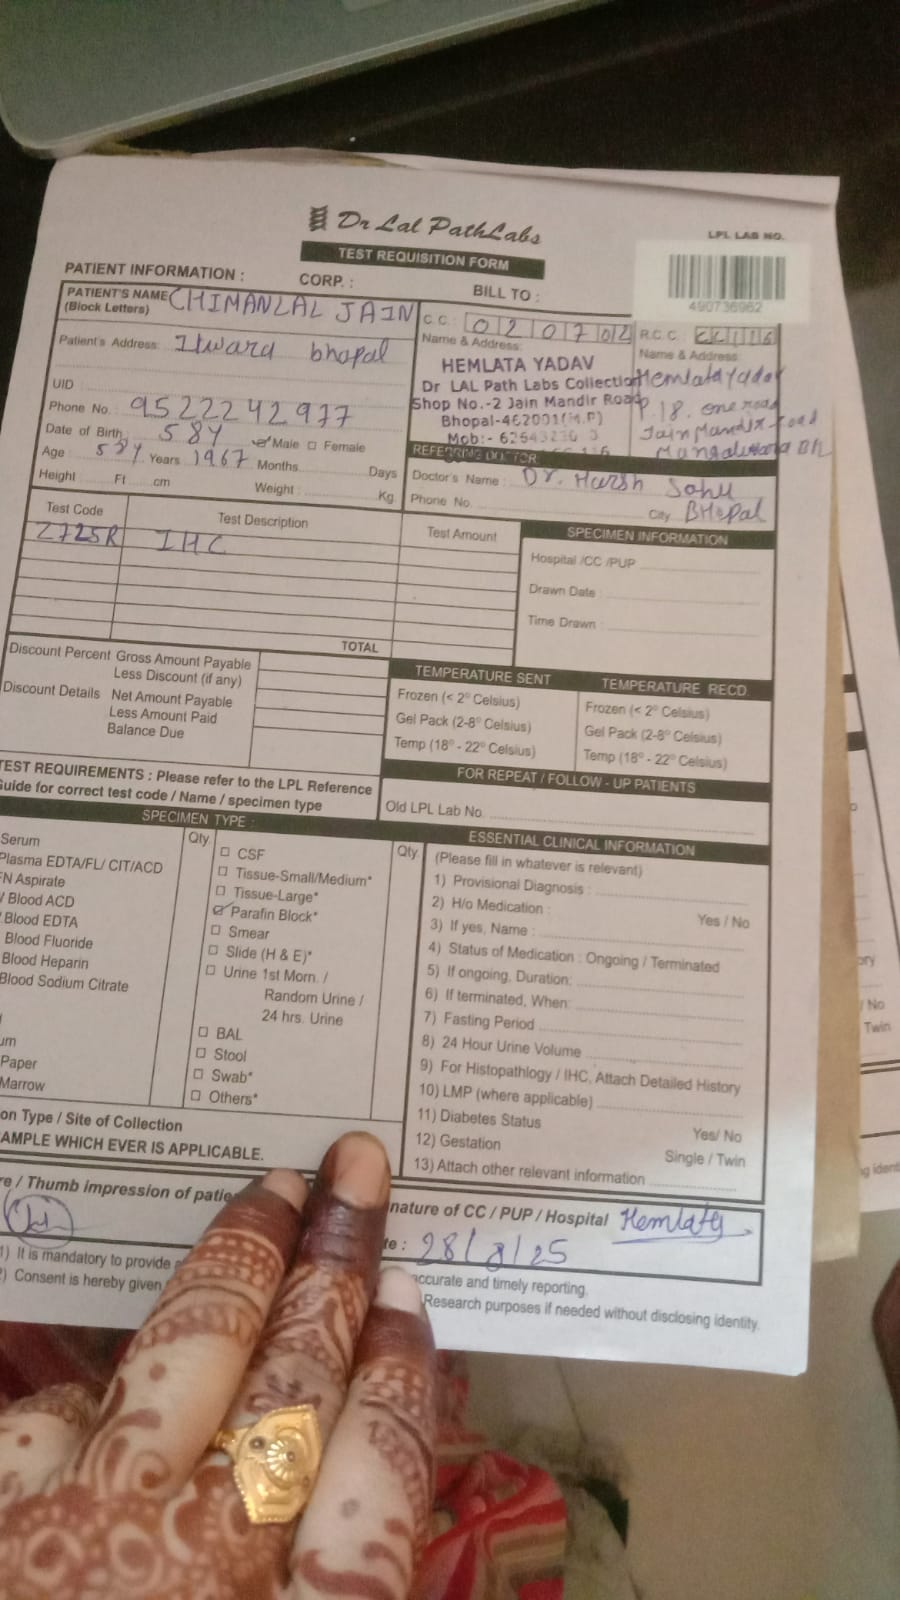 Dr Lal PathLabs
TEST REQUISITION FORM
LPL LAB NO.
490736962
PATIENT INFORMATION :
CORP. :
BILL TO :
PATIENT'S NAME CHIMANLAL JAIN
(Block Letters)
Patient's Address: Itwara bhopal
UID
Phone No. : 9522242977
Date of Birth : 58y Male Female
Age : 58y Years 1967 Months Days
Height Ft cm Weight : Kg.
C.C. : 020702
Name & Address:
HEMLATA YADAV
Dr LAL Path Labs Collection
Shop No.-2 Jain Mandir Road
Bhopal-462001(M.P)
Mob:-
R.C.C.
Name & Address
Hemlata Yadav
Jain Mandir Road
REFERRING DOCTOR
Doctor's Name : Dr. Harsh Sahu
Phone No. City BHopal
Test Code Test Description Test Amount
Z725R IHC
TOTAL
SPECIMEN INFORMATION
Hospital /CC /PUP
Drawn Date :
Time Drawn :
Discount Percent Gross Amount Payable
Less Discount (if any)
Discount Details Net Amount Payable
Less Amount Paid
Balance Due
TEMPERATURE SENT
Frozen (< 2° Celsius)
Gel Pack (2-8° Celsius)
Temp (18° - 22° Celsius)
TEMPERATURE RECD.
Frozen (< 2° Celsius)
Gel Pack (2-8° Celsius)
Temp (18° - 22° Celsius)
FOR REPEAT / FOLLOW - UP PATIENTS
Old LPL Lab No.
TEST REQUIREMENTS : Please refer to the LPL Reference
Guide for correct test code / Name / specimen type
SPECIMEN TYPE :
Serum
Plasma EDTA/FL/ CIT/ACD
FN Aspirate
/ Blood ACD
Blood EDTA
Blood Fluoride
Blood Heparin
Blood Sodium Citrate
um
Paper
Marrow
Qty.
CSF
Tissue-Small/Medium*
Tissue-Large*
Parafin Block*
Smear
Slide (H & E)*
Urine 1st Morn. /
Random Urine /
24 hrs. Urine
BAL
Stool
Swab*
Others*
Qty.
ESSENTIAL CLINICAL INFORMATION
(Please fill in whatever is relevant)
1) Provisional Diagnosis :
2) H/o Medication : Yes / No
3) If yes, Name :
4) Status of Medication : Ongoing / Terminated
5) If ongoing, Duration:
6) If terminated, When:
7) Fasting Period
8) 24 Hour Urine Volume
9) For Histopathlogy / IHC, Attach Detailed History
10) LMP (where applicable)
11) Diabetes Status Yes/ No
12) Gestation Single / Twin
13) Attach other relevant information
on Type / Site of Collection
AMPLE WHICH EVER IS APPLICABLE.
re / Thumb impression of patie
nature of CC / PUP / Hospital Hemlata
te : 28/8/25
1) It is mandatory to provide
accurate and timely reporting.
) Consent is hereby given
Research purposes if needed without disclosing identity.
ory
/ No
Twin
g ident